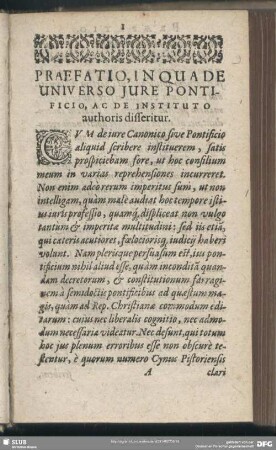 1
PRAEFATIO, IN QUA DE
UNIVERSO JURE PONTI-
FICIO, AC DE INSTITUTO
authoris disseritur.
CVM de iure Canonico sive Pontificio
aliquid scribere instituerem, satis
prospiciebam fore, ut hoc consilium
meum in varias reprehensiones incurreret.
Non enim adeò rerum imperitus sum, ut non
intelligam, quàm malè audiat hoc tempore istius
iuris professio, quamq́; displiceat non vulgo
tantùm & imperitæ multitudini: sed iis etiā,
qui cæteris acutiores, fœlociorisq́; iudicij haberi
volunt. Nam plerisque persuasum est, ius pontificium
nihil aliud esse, quàm inconditā quandam
decretorum, & constitutionum farraginem
à semidoctis pontificibus ad quæstum magis,
quàm ad Rep. Christianæ commodum editarum:
cuius nec liberalis cognitio, nec admodum
necessaria videatur. Nec desunt, qui totum
hoc jus plenum erroribus esse non obscurè testentur,
è quorum numero Cynus Pistoriensis
A clari
SLUB
DFG